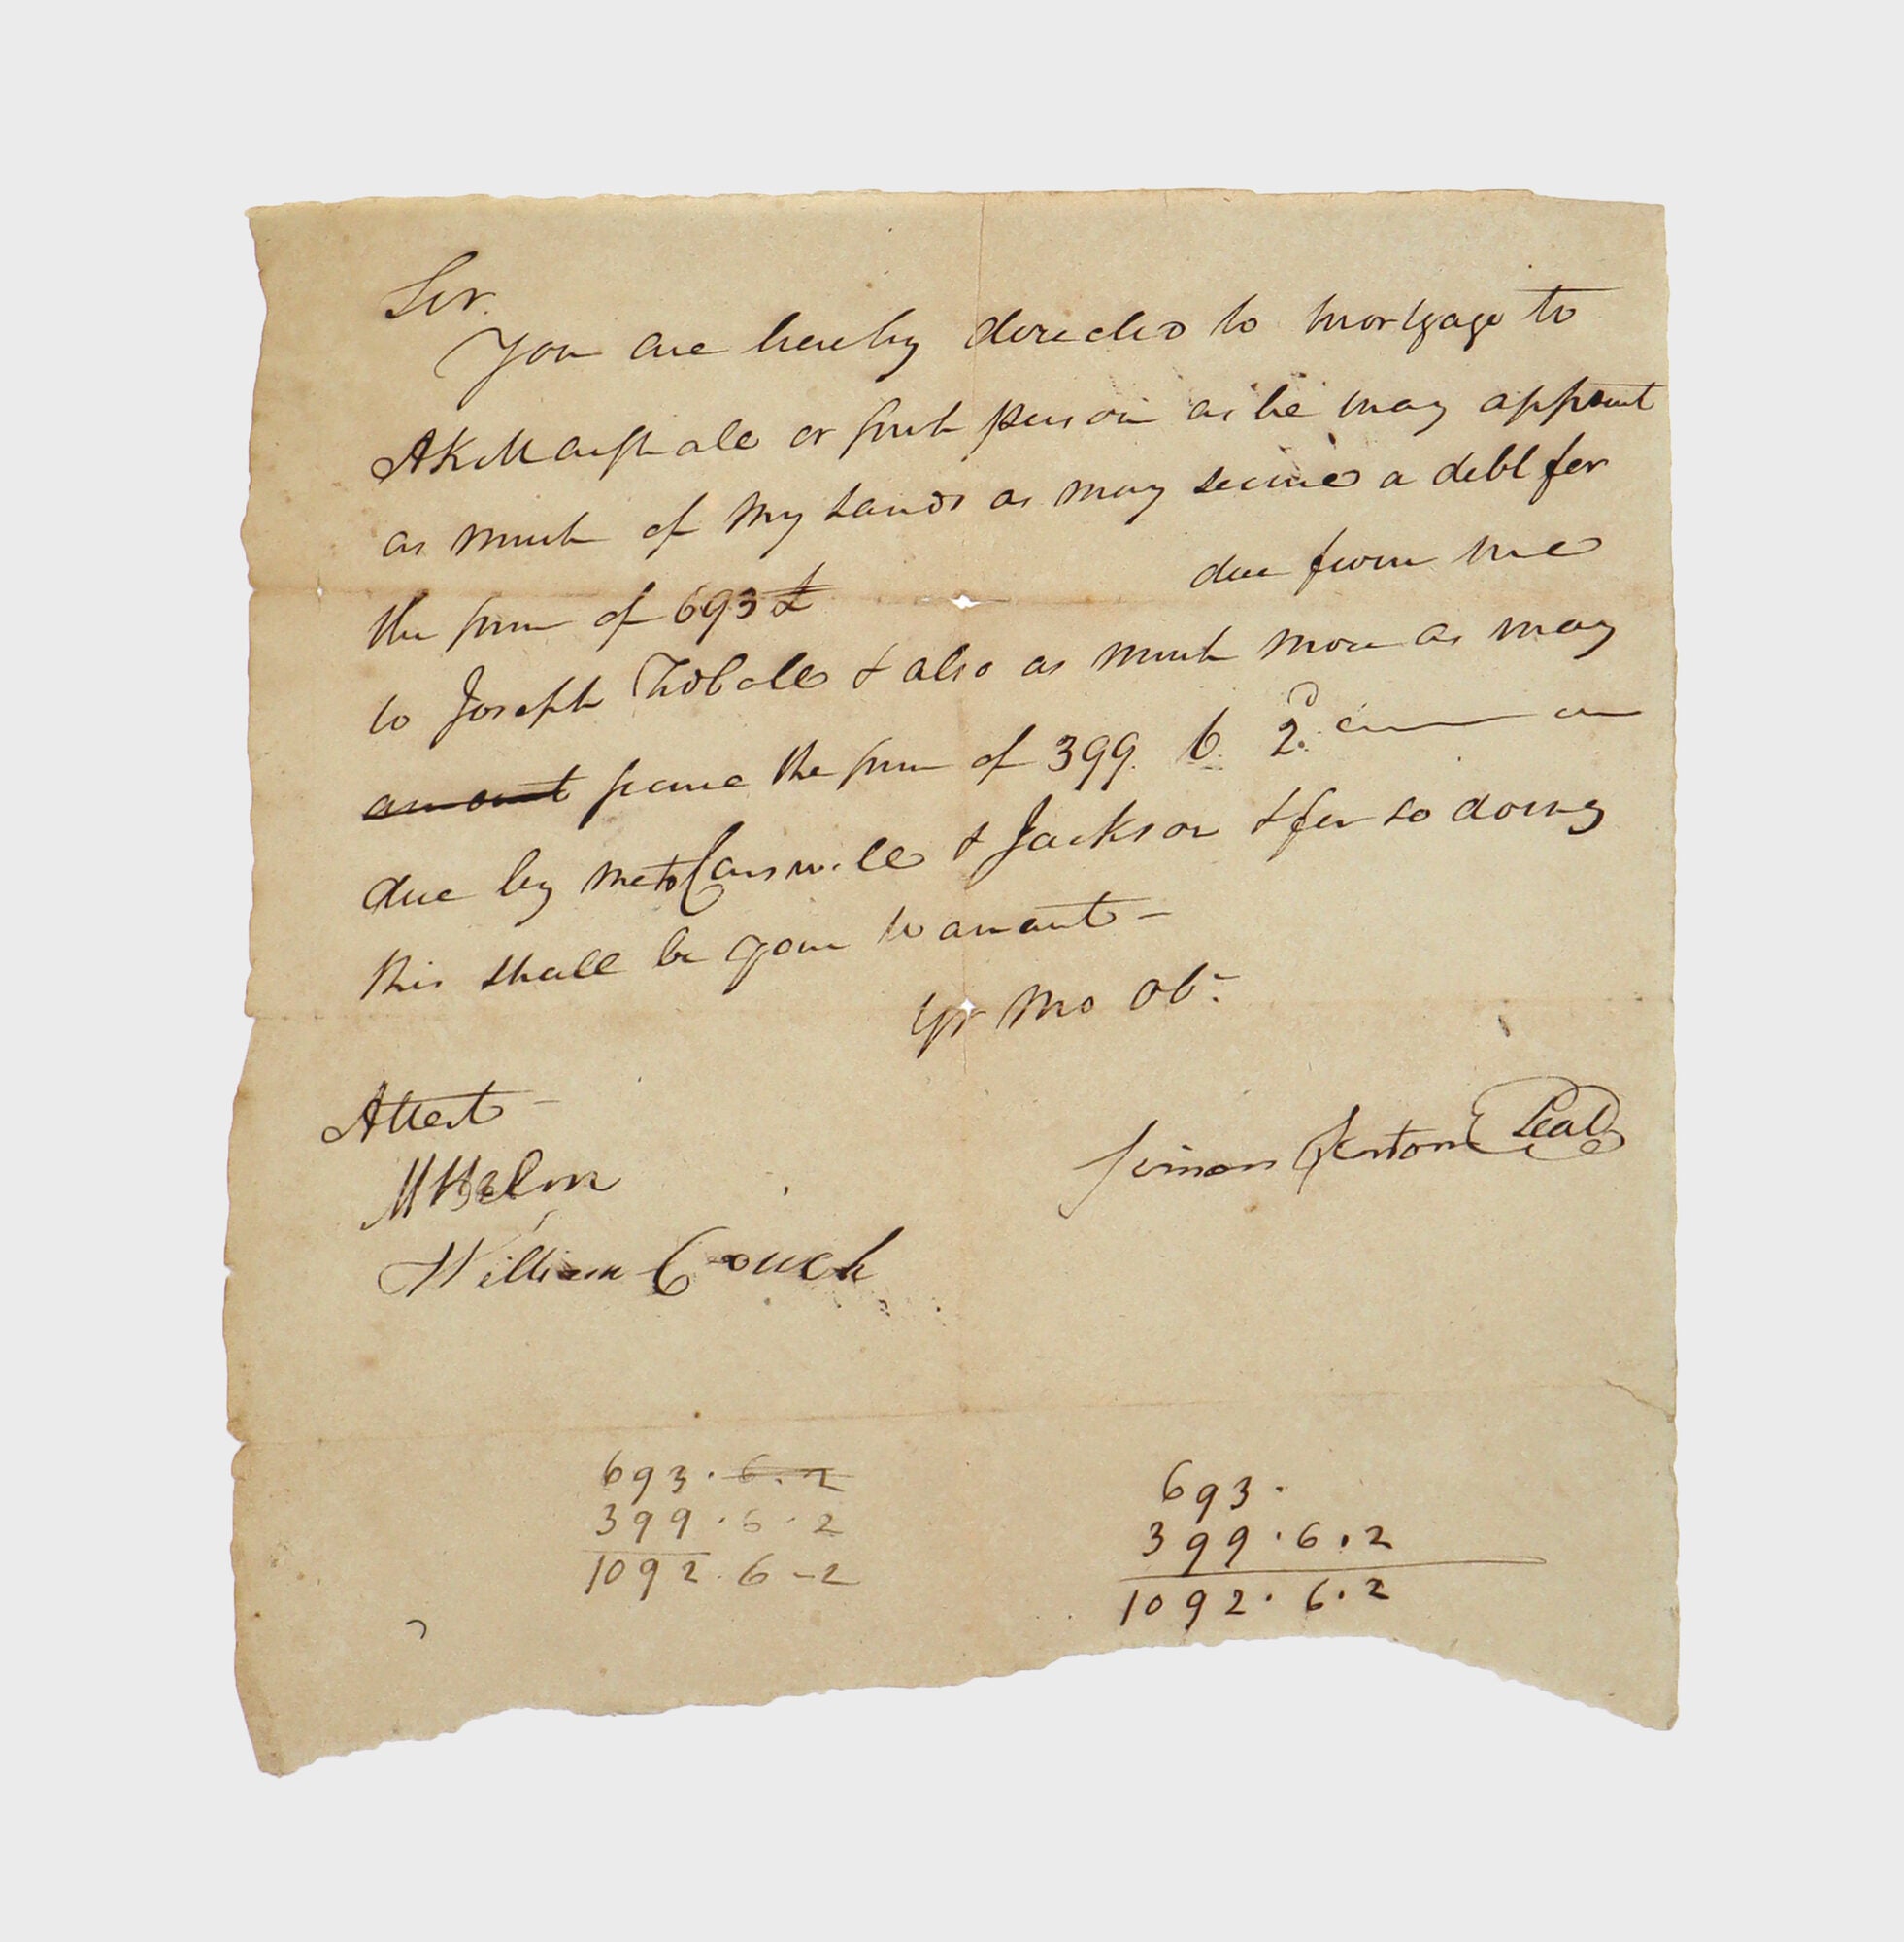 Sir.
You are hereby directed to mortgage to
AK Marshall or such person as he may appoint
as much of my Lands as may secure a debt for
the sum of 693£ due from me
to Joseph Tidball & also as much more as may
amount secure the sum of 399. 6. 2d.
due by me to Carswell & Jackson & for so doing
this shall be your warrant —
Yr Mo Ob.
Attest —
Simon Kenton Seal
M Helm
William Couch
693 . 6 . 2
399 . 6 . 2
1092 . 6 - 2
693 .
399 . 6 . 2
1092 . 6 . 2